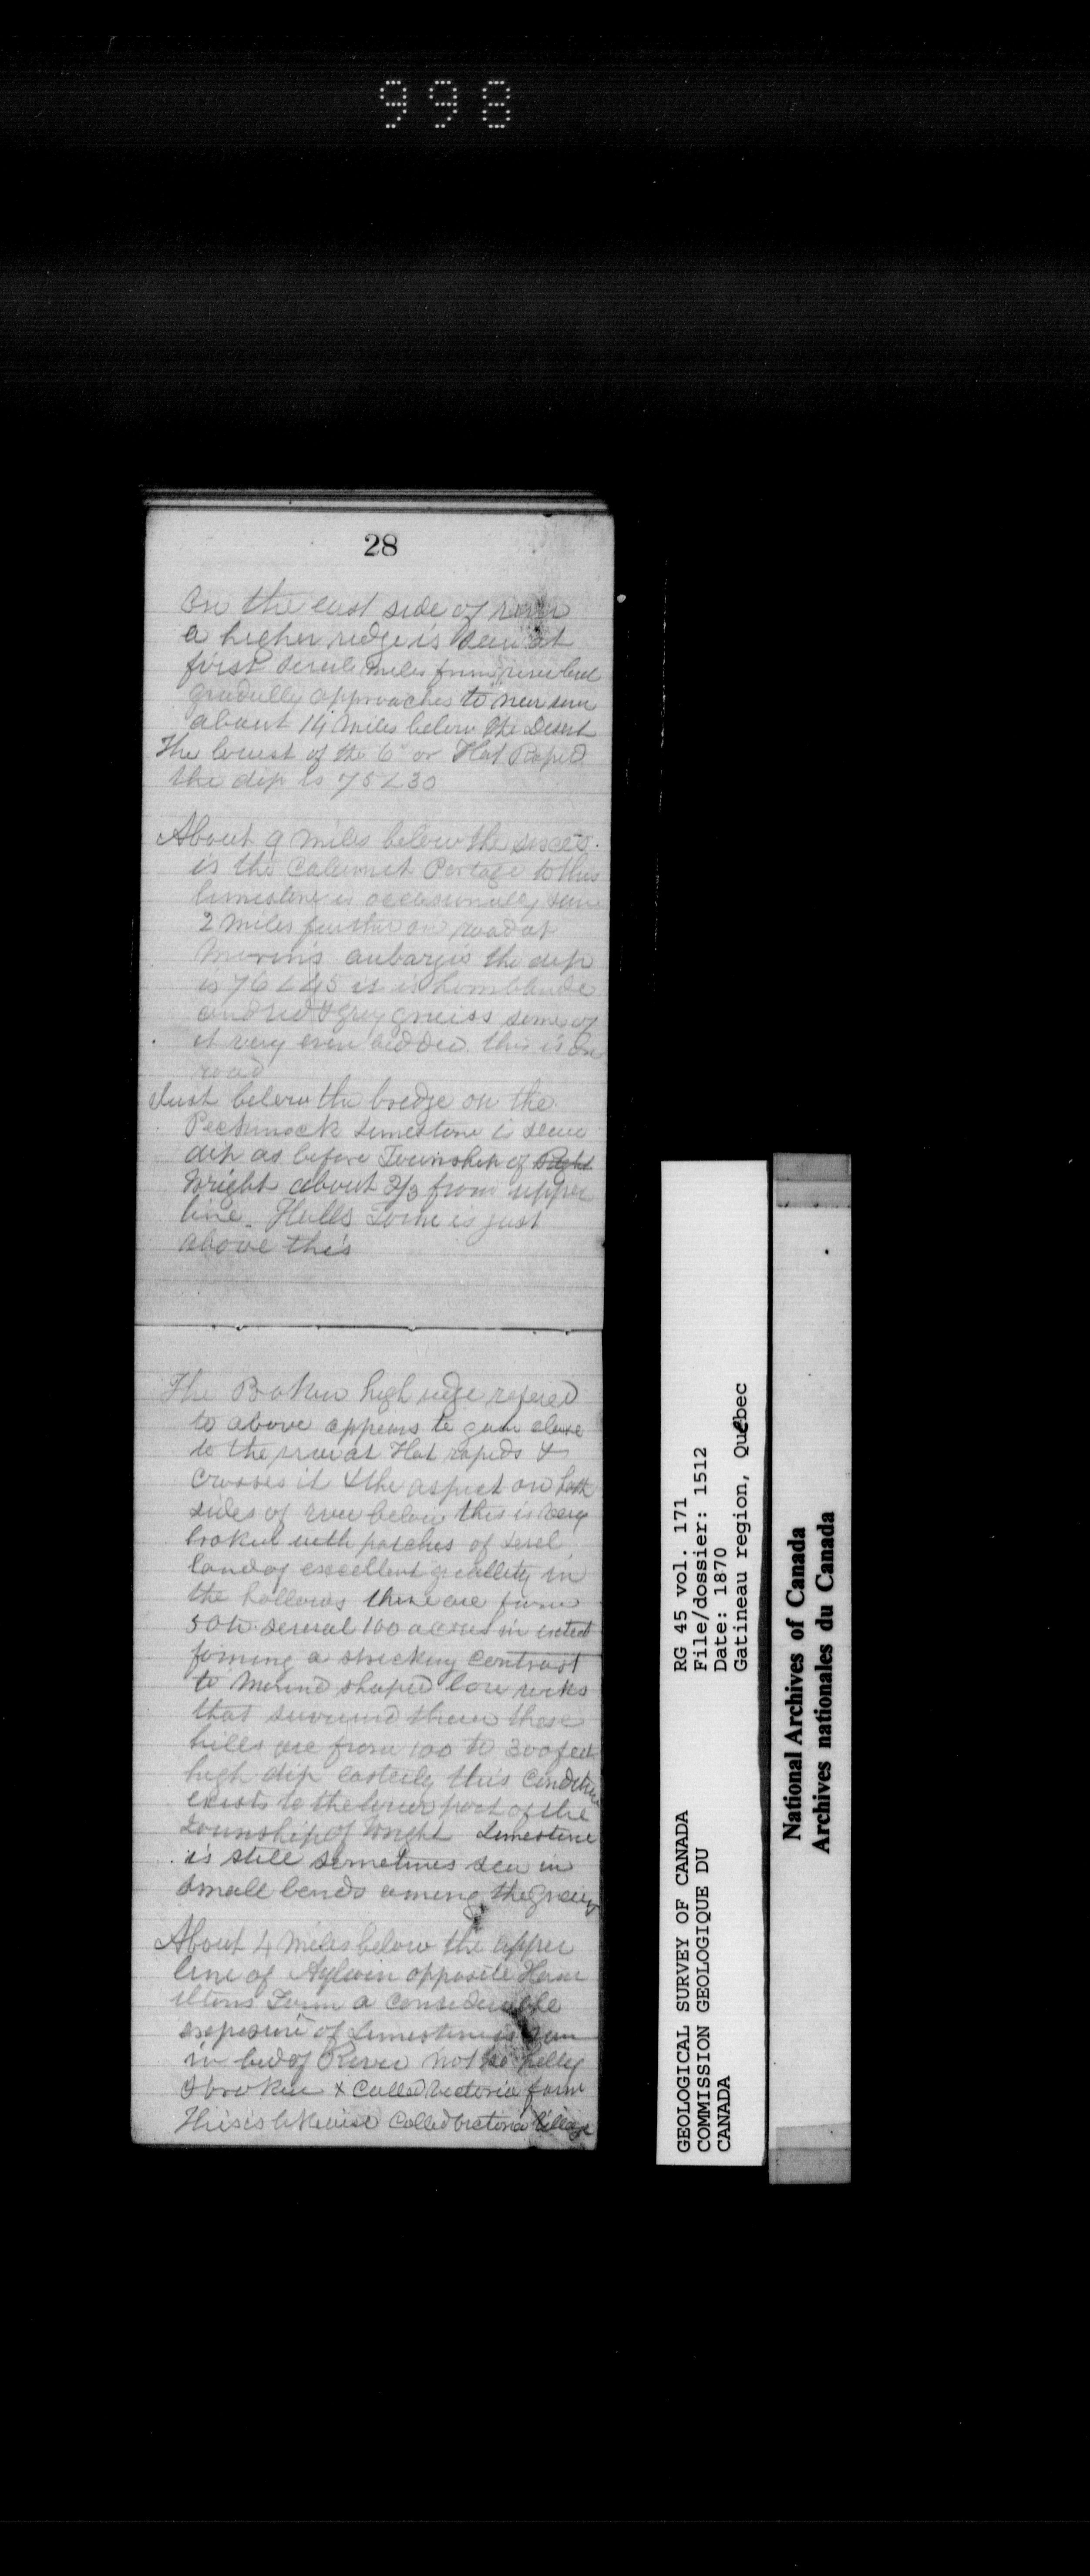 998
28
On the east side of river
a higher ridge is seen at
first several miles from river but
gradually approaches to near river
about 14 miles below the Desert
The lowest of the 6 or Flat Rapid
the dip is 75 < 30
About 9 miles below the
is the Calumet Portage to this
limestone is occasionally seen
2 miles further on road at
the dip
is 76 < 45 it is hornblende
and red & grey gneiss some of
it very even bedded this is on
road
Just below the bredge on the
Peckunock Limestone is seen
dip as before Township of
Wright about 2/3 from upper
line. Halls is just
above this
The Broken high ridge refered
to above appears to close
to the river at Flat rapids &
Crosses it & the aspect on both
sides of river below this is very
broken with patches of level
land of excellent quallity in
the hollows there are from
50 to several 100 acres in extent
forming a strecking contrast
to mound shaped low rocks
that surround them these
hills are from 100 to 300 feet
high dip easterly this condition
exists to the lower part of the
Township of Wright Limestone
is still sometimes seen in
small bands among the
About 4 miles below the upper
line of Aylwin opposite Ham
iltons Farm a considerable
exposure of Limestone is seen
in bed of River not so hilly
& broken & Called Victoria farm
This is likewise Called Victoria Village
GEOLOGICAL SURVEY OF CANADA
COMMISSION GEOLOGIQUE DU
CANADA
RG 45 vol. 171
File/dossier: 1512
Date: 1870
Gatineau region, Québec
National Archives of Canada
Archives nationales du Canada